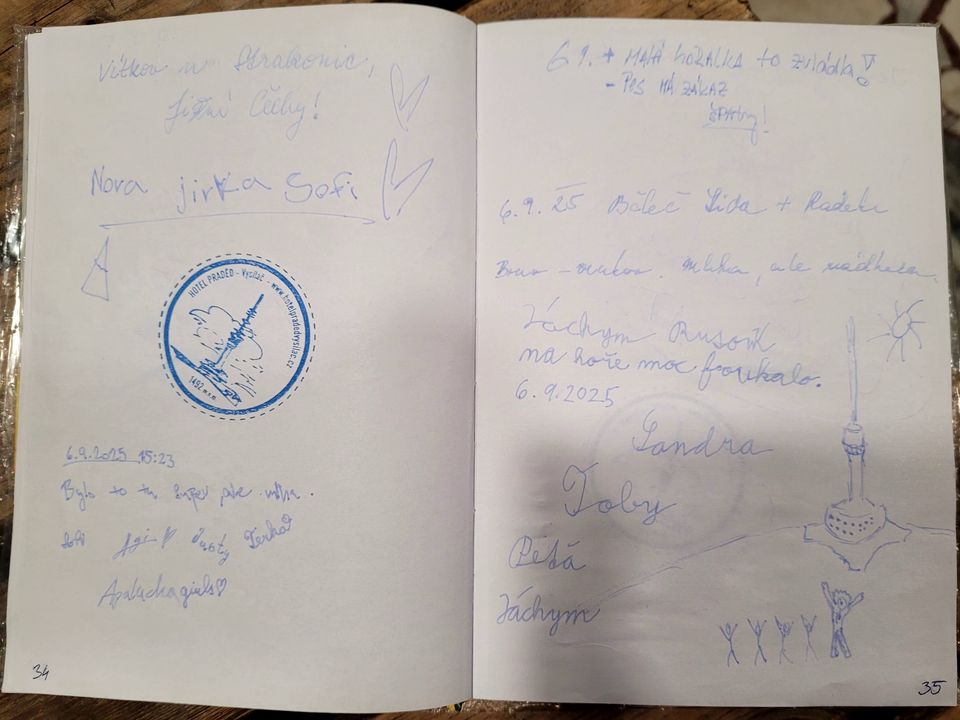 Vítkov u Strakonic,
Jižní Čechy!
Nora jirka Sofi
HOTEL PRADĚD - Vysílač - www.hotelpradedvysilac.cz
1492 m.n.m.
6.9.2025 15:23
Bylo to tu super
Terka
Apalucha girls
34
6.9. + MALÁ hOŘALKA to zvládla!
- PES MÁ ZÁKAZ
ŠPATNÝ!
6.9.25 Bčleč Lída + Radek
mlha, ale nádhera
Jáchym Rusořk
na hoře moc foukalo.
6.9.2025
Sandra
Toby
Péťa
Jáchym
35